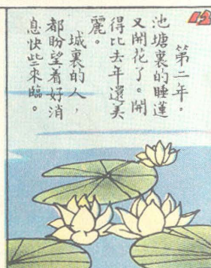 第二年,
池塘裏的睡蓮
又開花了。開
得比去年還美
麗。
城裏的人,
都盼望着好消
息快些來臨。